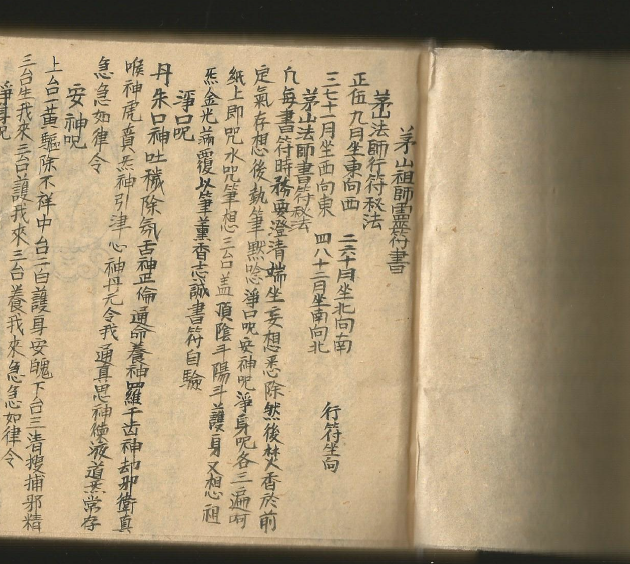 茅山祖師靈符書
茅山法師行符秘法
正伍九月坐東向西 二六十月坐北向南
三七十一月坐西向東 四八十二月坐南向北 行符坐向
茅山法師書符秘法
凡每書符時務要澄清端坐妄想悉除然後焚香於前
定氣存想後執筆黙唸淨口呪安神呪淨身呪各三遍呵
紙上即咒水咒筆想三台盖頂陰斗陽斗護身又想祖
炁金光滿覆以筆薰香志誠書符自驗
淨口呪
丹朱口神吐穢除氛舌神正倫通命養神羅千齿神却邪衛真
喉神虎賁炁神引津心神丹元令我通真思神煉液道炁常存
急急如律令
安神呪
上台黃驅除不祥中台二白護身安魄下台三清搜捕邪精
三台生我來三台護我來三台養我來急急如律令
淨身呪